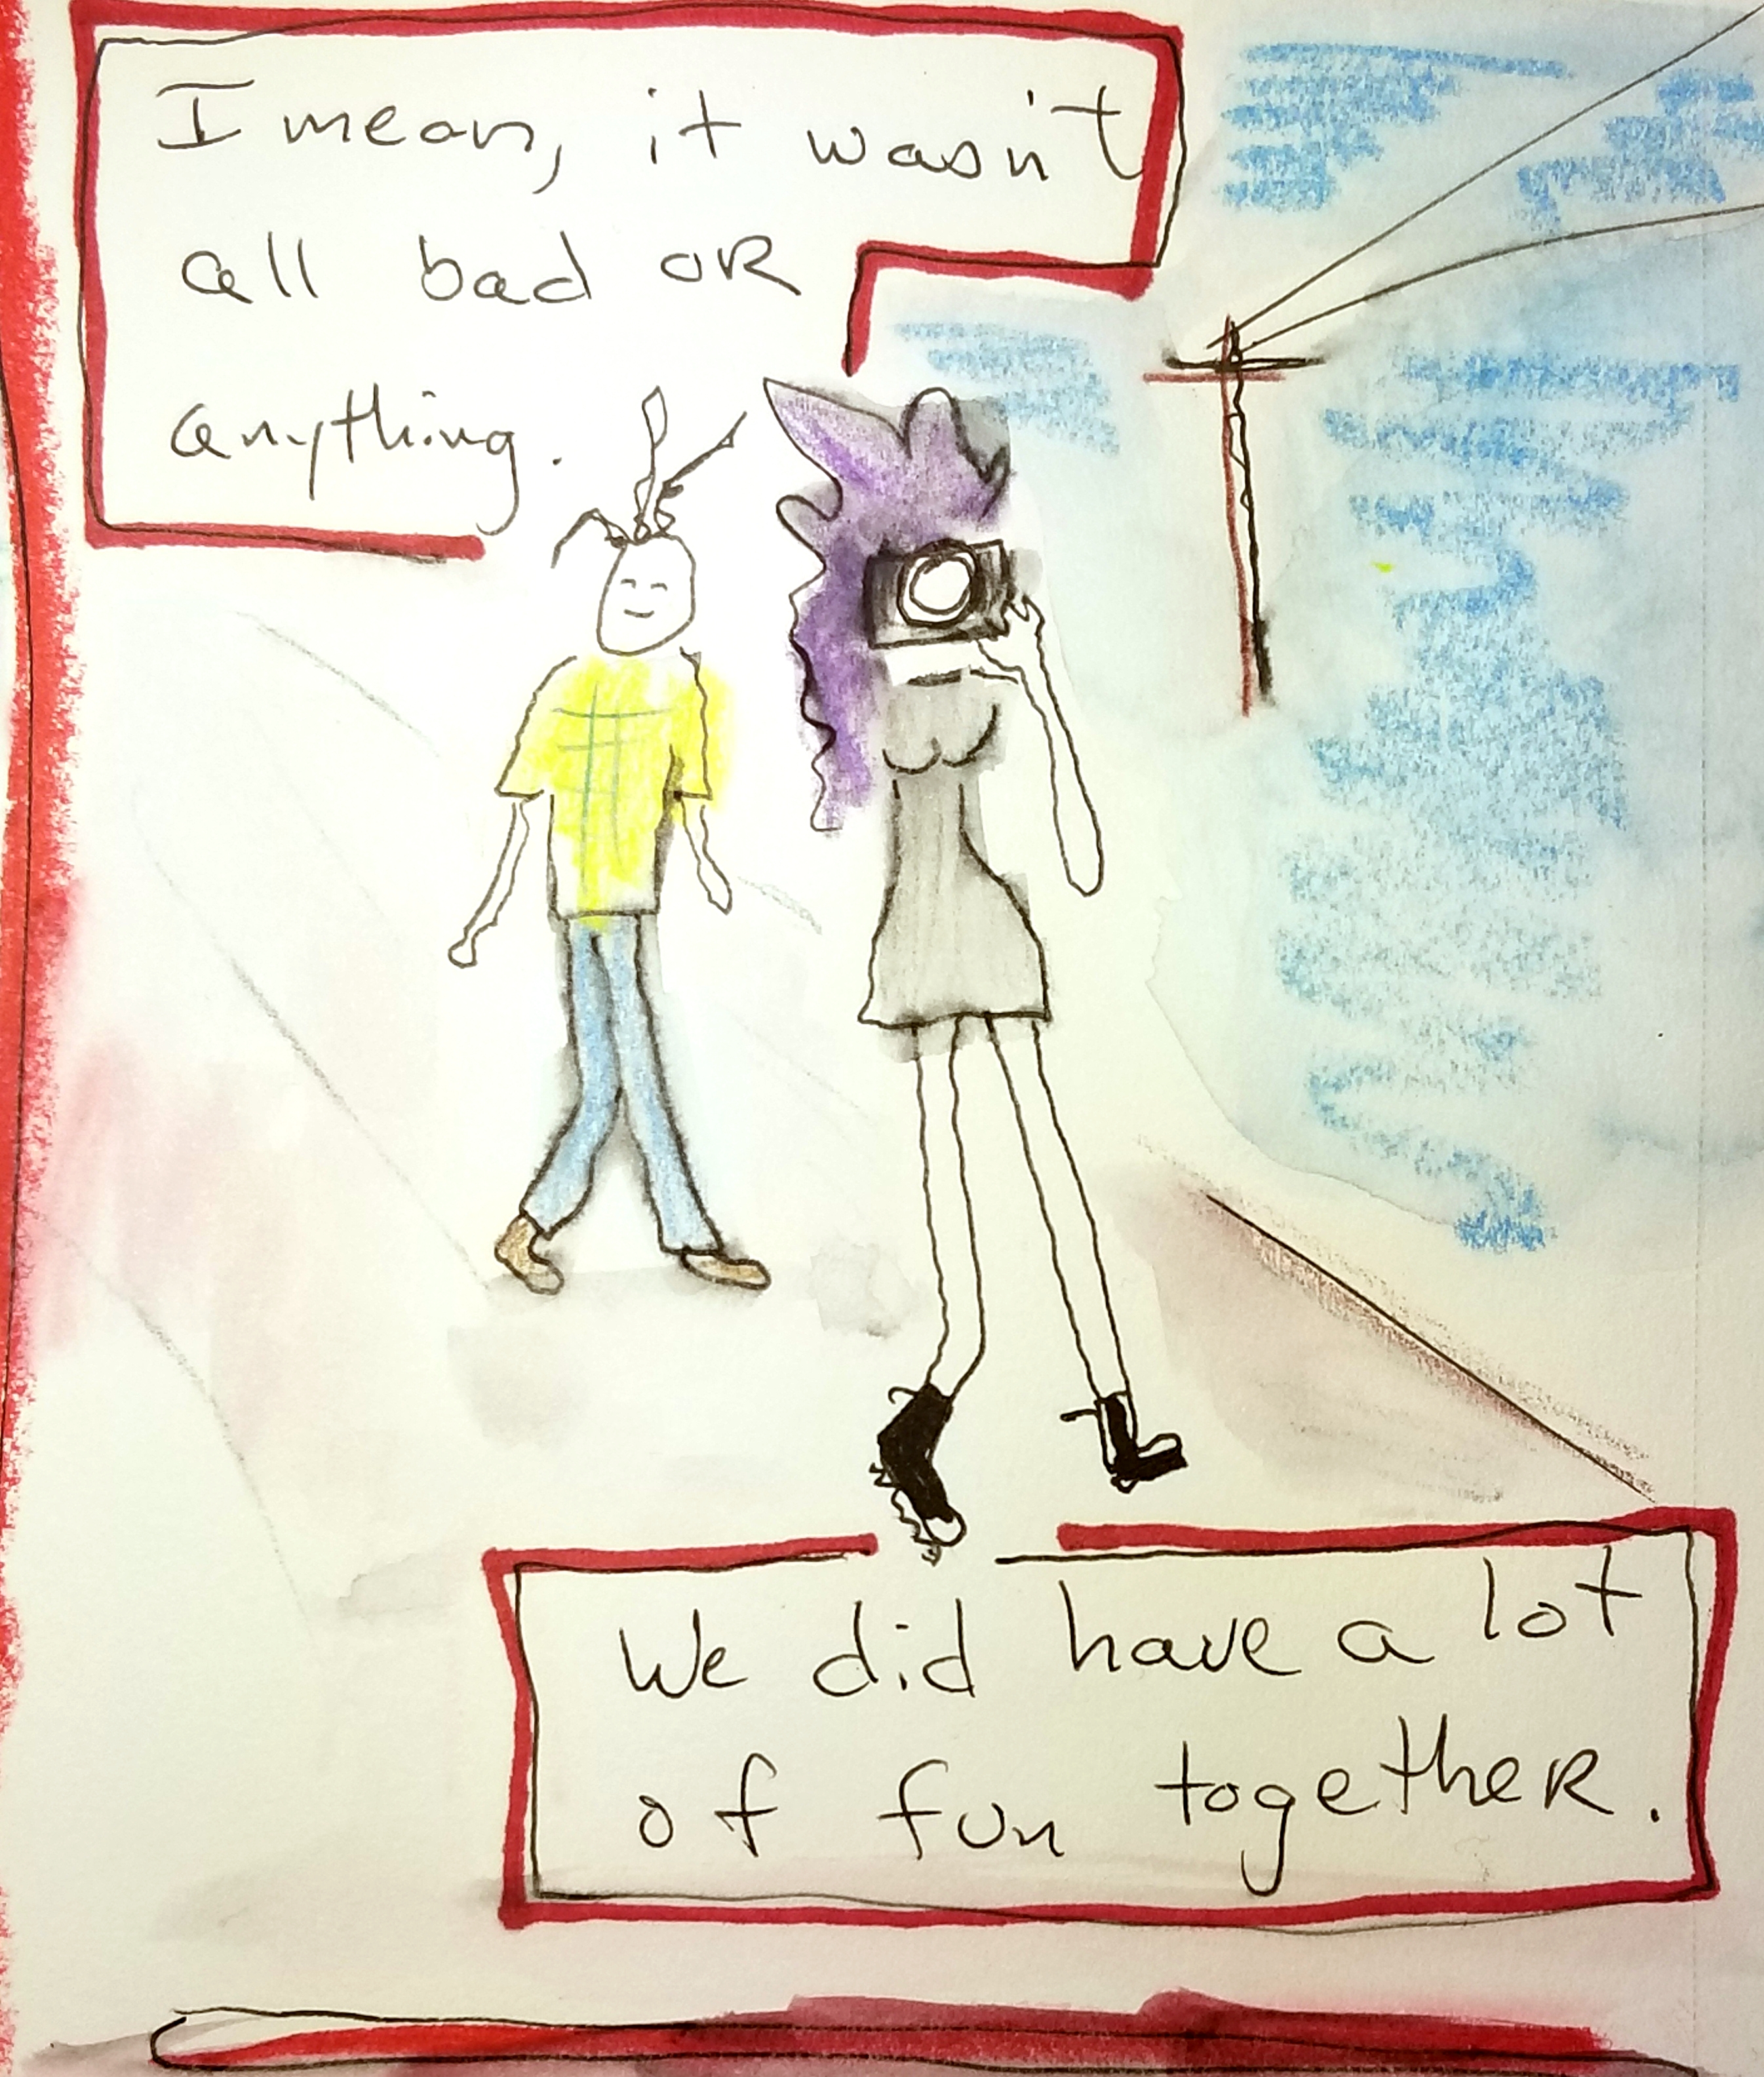 I mean, it wasn't
all bad OR
anything.
We did have a lot
of fun togetheR.